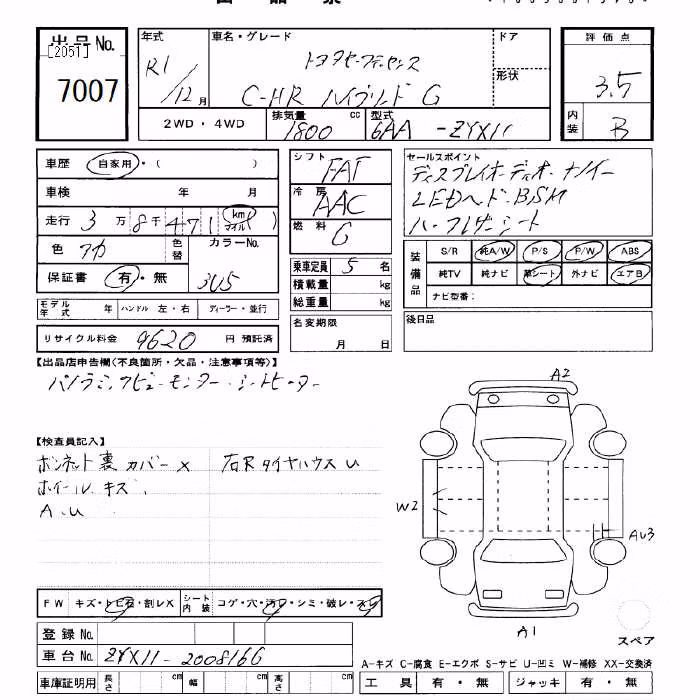 出品No.
[2051]
7007
年式
R1/12月
車名・グレード
トヨタセーフティセンス
C-HR ハイブリッド G
ドア
形状
評価点
3.5
内装
B
2WD・4WD
排気量 1800 cc
型式 6AA-ZYX11
車歴 自家用・( )
車検 年 月
走行 3万8千471(km マイル)
色 アカ
色替
カラーNo.
3U5
保証書 有・無
シフト FAT
冷房 AAC
燃料 G
乗車定員 5 名
積載量 kg
総重量 kg
セールスポイント
ディスプレイオーディオ・ナノイー
LEDヘッド・BSM
ハーフレザーシート
装備品
S/R 純A/W P/S P/W ABS
純TV 純ナビ 革シート 外ナビ エアB
ナビ型番:
モデル年式 年 ハンドル 左・右 ディーラー・並行
リサイクル料金 9620 円 預託済
名変期限
月 日
後日品
【出品店申告欄(不良箇所・欠品・注意事項等)】
パノラミックビューモニター・シートヒーター
【検査員記入】
ボンネット裏カバー× 右Rタイヤハウス U
ホイール キズ
A.U
A2
W2
AU3
A1
スペア
FW キズ・トビ石・割レX
シート内装 コゲ・穴・汚レ・シミ・破レ・スレ
登録No.
車台No. ZYX11-2008166
車庫証明用 長さ cm 幅 cm 高さ cm
A-キズ C-腐食 E-エクボ S-サビ U-凹ミ W-補修 XX-交換済
工具 有・無 ジャッキ 有・無